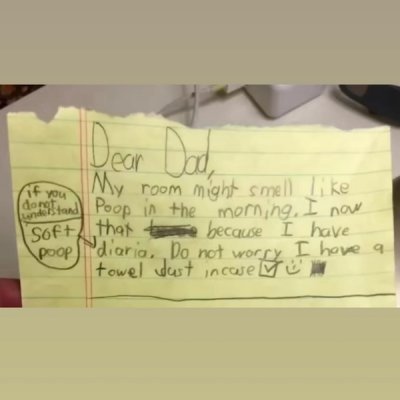 Dear Dad,
My room might smell like
Poop in the morning. I now
that because I have
diaria. Do not worry I have a
towel Just incase
if you
do not
understand
Soft
poop